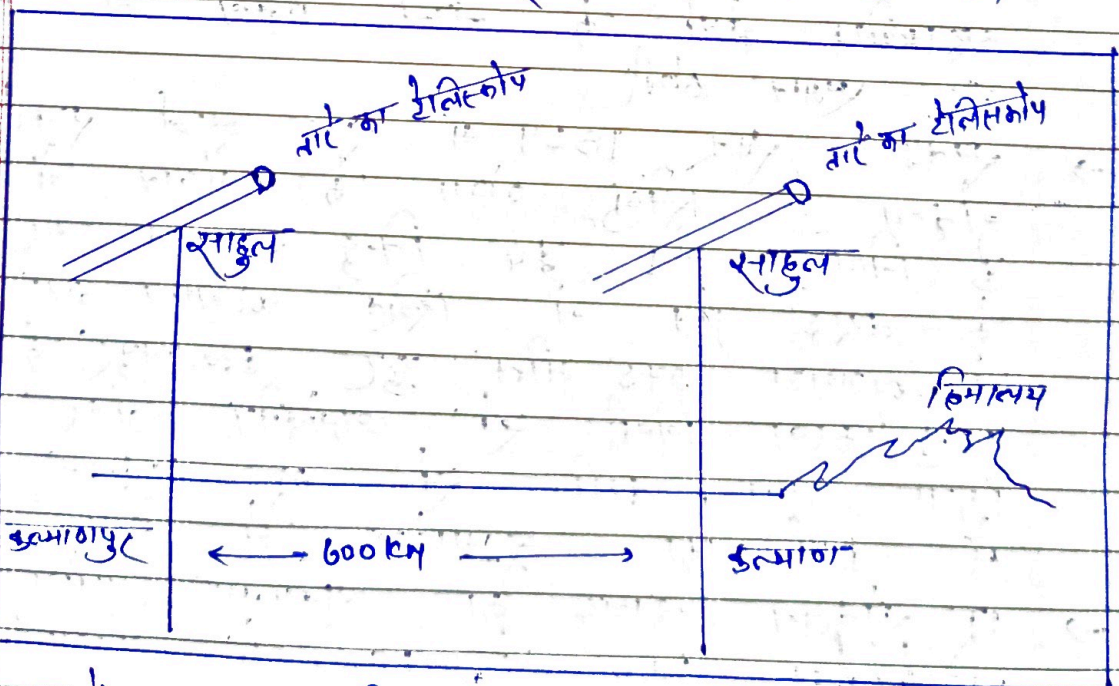 तारे का टेलिस्कोप
तारे का टेलिसकोप
साहुल
साहुल
हिमालय
कल्याणपुर
600 KM
कल्याण